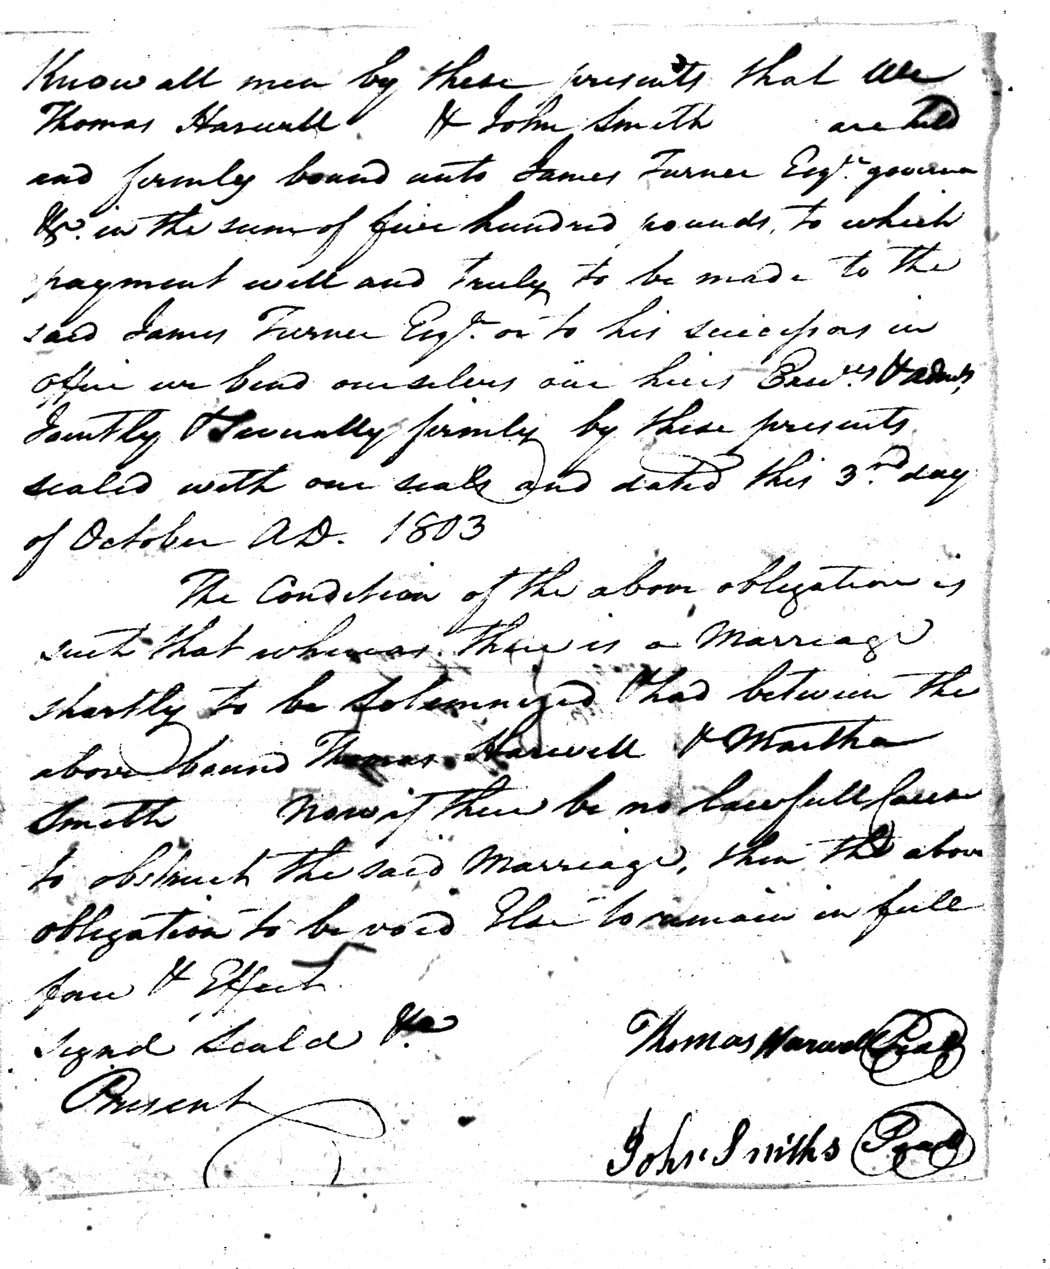 Know all men by these presents that We
Thomas Harwell & John Smith are held
and firmly bound unto James Turner Esqr. governor
&c. in the sum of five hundred pounds, to which
payment well and truly to be made to the
said James Turner Esqr. or to his successors in
office we bind ourselves our heirs & admrs,
Jointly & Severally firmly by these presents
sealed with our seals and dated this 3rd day
of October A.D. 1803
The Condition of the above obligation is
such that whereas there is a Marriage
shortly to be Solemnized & had between the
above bound Thomas Harwell & Martha
Smith Now if there be no lawfull cause
to obstruct the said Marriage, then the above
obligation to be void Else to remain in full
force & Effect
Signd Seald &c
Thomas Harwell Seal
Present
John Smith Seal